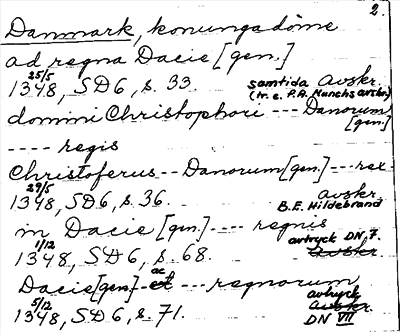 2.
Danmark, konungadöme
ad regna Dacie [gen.]
25/5
1348, SD6, s. 33. samtida Avskr.
(tr. e. P.A. Munchs avskr.)
domini Christophori --- Danorum
[gen.]
---- regis
Christoferus -- Danorum [gen.] --- rex
29/5
1348, SD6, s. 36. avskr.
B.E. Hildebrand
in Dacie [gen.] ---- regnis
1/12
1348, SD6, s. 68. avtryck DN, 7.
Avskr
Dacie [gen.] - et ac --- regnorum
5/12
1348, SD6, s. 71. avtryck
Avskr
DN VII